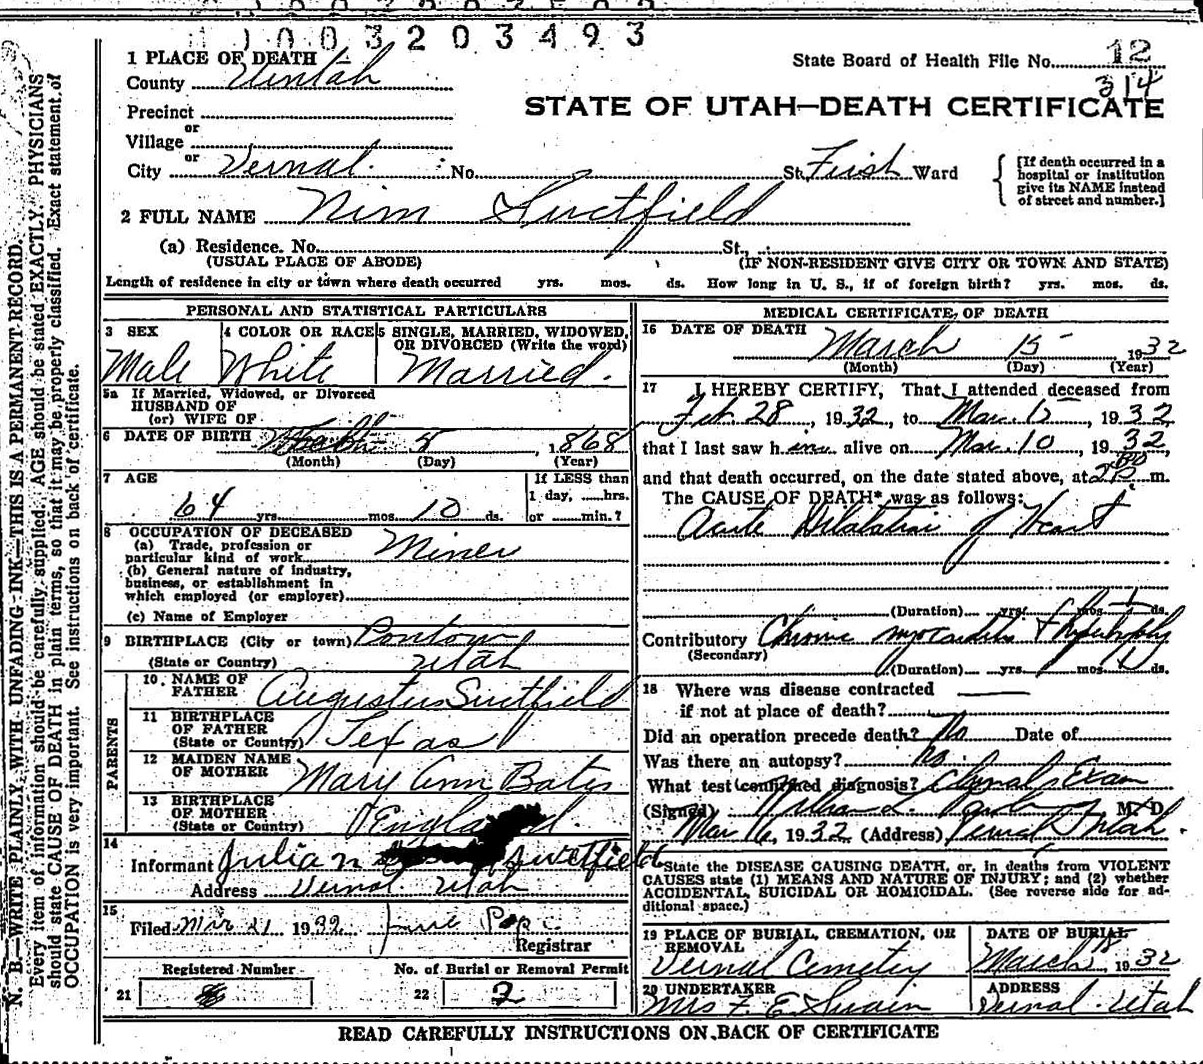 1003203493
1 PLACE OF DEATH
State Board of Health File No. 12
314
County Uintah
STATE OF UTAH—DEATH CERTIFICATE
Precinct
or
Village
or
City Vernal. No. St. First Ward
[If death occurred in a hospital or institution give its NAME instead of street and number.]
2 FULL NAME Nim
(a) Residence. No. St.,
(USUAL PLACE OF ABODE) (IF NON-RESIDENT GIVE CITY OR TOWN AND STATE)
Length of residence in city or town where death occurred yrs. mos. ds. How long in U. S., if of foreign birth? yrs. mos. ds.
PERSONAL AND STATISTICAL PARTICULARS
3 SEX 4 COLOR OR RACE 5 SINGLE, MARRIED, WIDOWED, OR DIVORCED (Write the word)
Male White Married.
5a If Married, Widowed, or Divorced
HUSBAND OF
(or) WIFE OF
6 DATE OF BIRTH 5, 1868
(Month) (Day) (Year)
7 AGE If LESS than
1 day, ......hrs.
64 yrs. mos. 10 ds. or ......min.?
8 OCCUPATION OF DECEASED
(a) Trade, profession or
particular kind of work Miner
(b) General nature of industry,
business, or establishment in
which employed (or employer)
(c) Name of Employer
9 BIRTHPLACE (City or town)
(State or Country) Utah
PARENTS
10. NAME OF
FATHER Augustus
11 BIRTHPLACE
OF FATHER
(State or Country) Texas
12 MAIDEN NAME
OF MOTHER Mary Ann Bates
13 BIRTHPLACE
OF MOTHER
(State or Country) England.
14
Informant Julian
Address Vernal Utah
15
Filed Mar 21 1932
Registrar
Registered Number No. of Burial or Removal Permit
21 22 2
MEDICAL CERTIFICATE OF DEATH
16 DATE OF DEATH March 15 1932
(Month) (Day) (Year)
17 I HEREBY CERTIFY, That I attended deceased from
Feb. 28, 1932, to Mar. 15, 1932
that I last saw him alive on Mar. 10, 1932,
and that death occurred, on the date stated above, at m.
The CAUSE OF DEATH* was as follows:
Acute Dilatation of Heart
(Duration) yrs. mos. 1 ds.
Contributory Chronic myocarditis & hypertrophy
(Secondary)
(Duration) yrs. mos. ds.
18 Where was disease contracted
if not at place of death?
Did an operation precede death? No Date of
Was there an autopsy? No.
What test confirmed diagnosis? Exam
(Signed) William M. D.
Mar 16, 1932 (Address) Vernal Utah.
*State the DISEASE CAUSING DEATH, or, in deaths from VIOLENT
CAUSES state (1) MEANS AND NATURE OF INJURY; and (2) whether
ACCIDENTAL, SUICIDAL OR HOMICIDAL. (See reverse side for ad-
ditional space.)
19 PLACE OF BURIAL, CREMATION, OR REMOVAL DATE OF BURIAL
Vernal Cemetery March 18, 1932
20 UNDERTAKER ADDRESS
Mrs F. E. Swain Vernal Utah
READ CAREFULLY INSTRUCTIONS ON BACK OF CERTIFICATE
N. B.—WRITE PLAINLY, WITH UNFADING INK—THIS IS A PERMANENT RECORD.
Every item of information should be carefully supplied. AGE should be stated EXACTLY. PHYSICIANS
should state CAUSE OF DEATH in plain terms, so that it may be properly classified. Exact statement of
OCCUPATION is very important. See instructions on back of certificate.